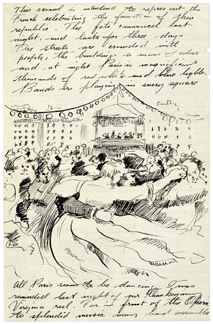 This scrawl is intended to represent the
French celebrating the founding of their
republic. The fete commenced last
night, and lasts for three days.
The streets are crowded with
people, the buildings a mass of color
and at night Paris is magnificent
thousands of red white and blue lights.
Bands are playing in every square
All Paris seems to be dancing.
reminded last night of our
Virginia reel. in front of the Opera
to splendid music